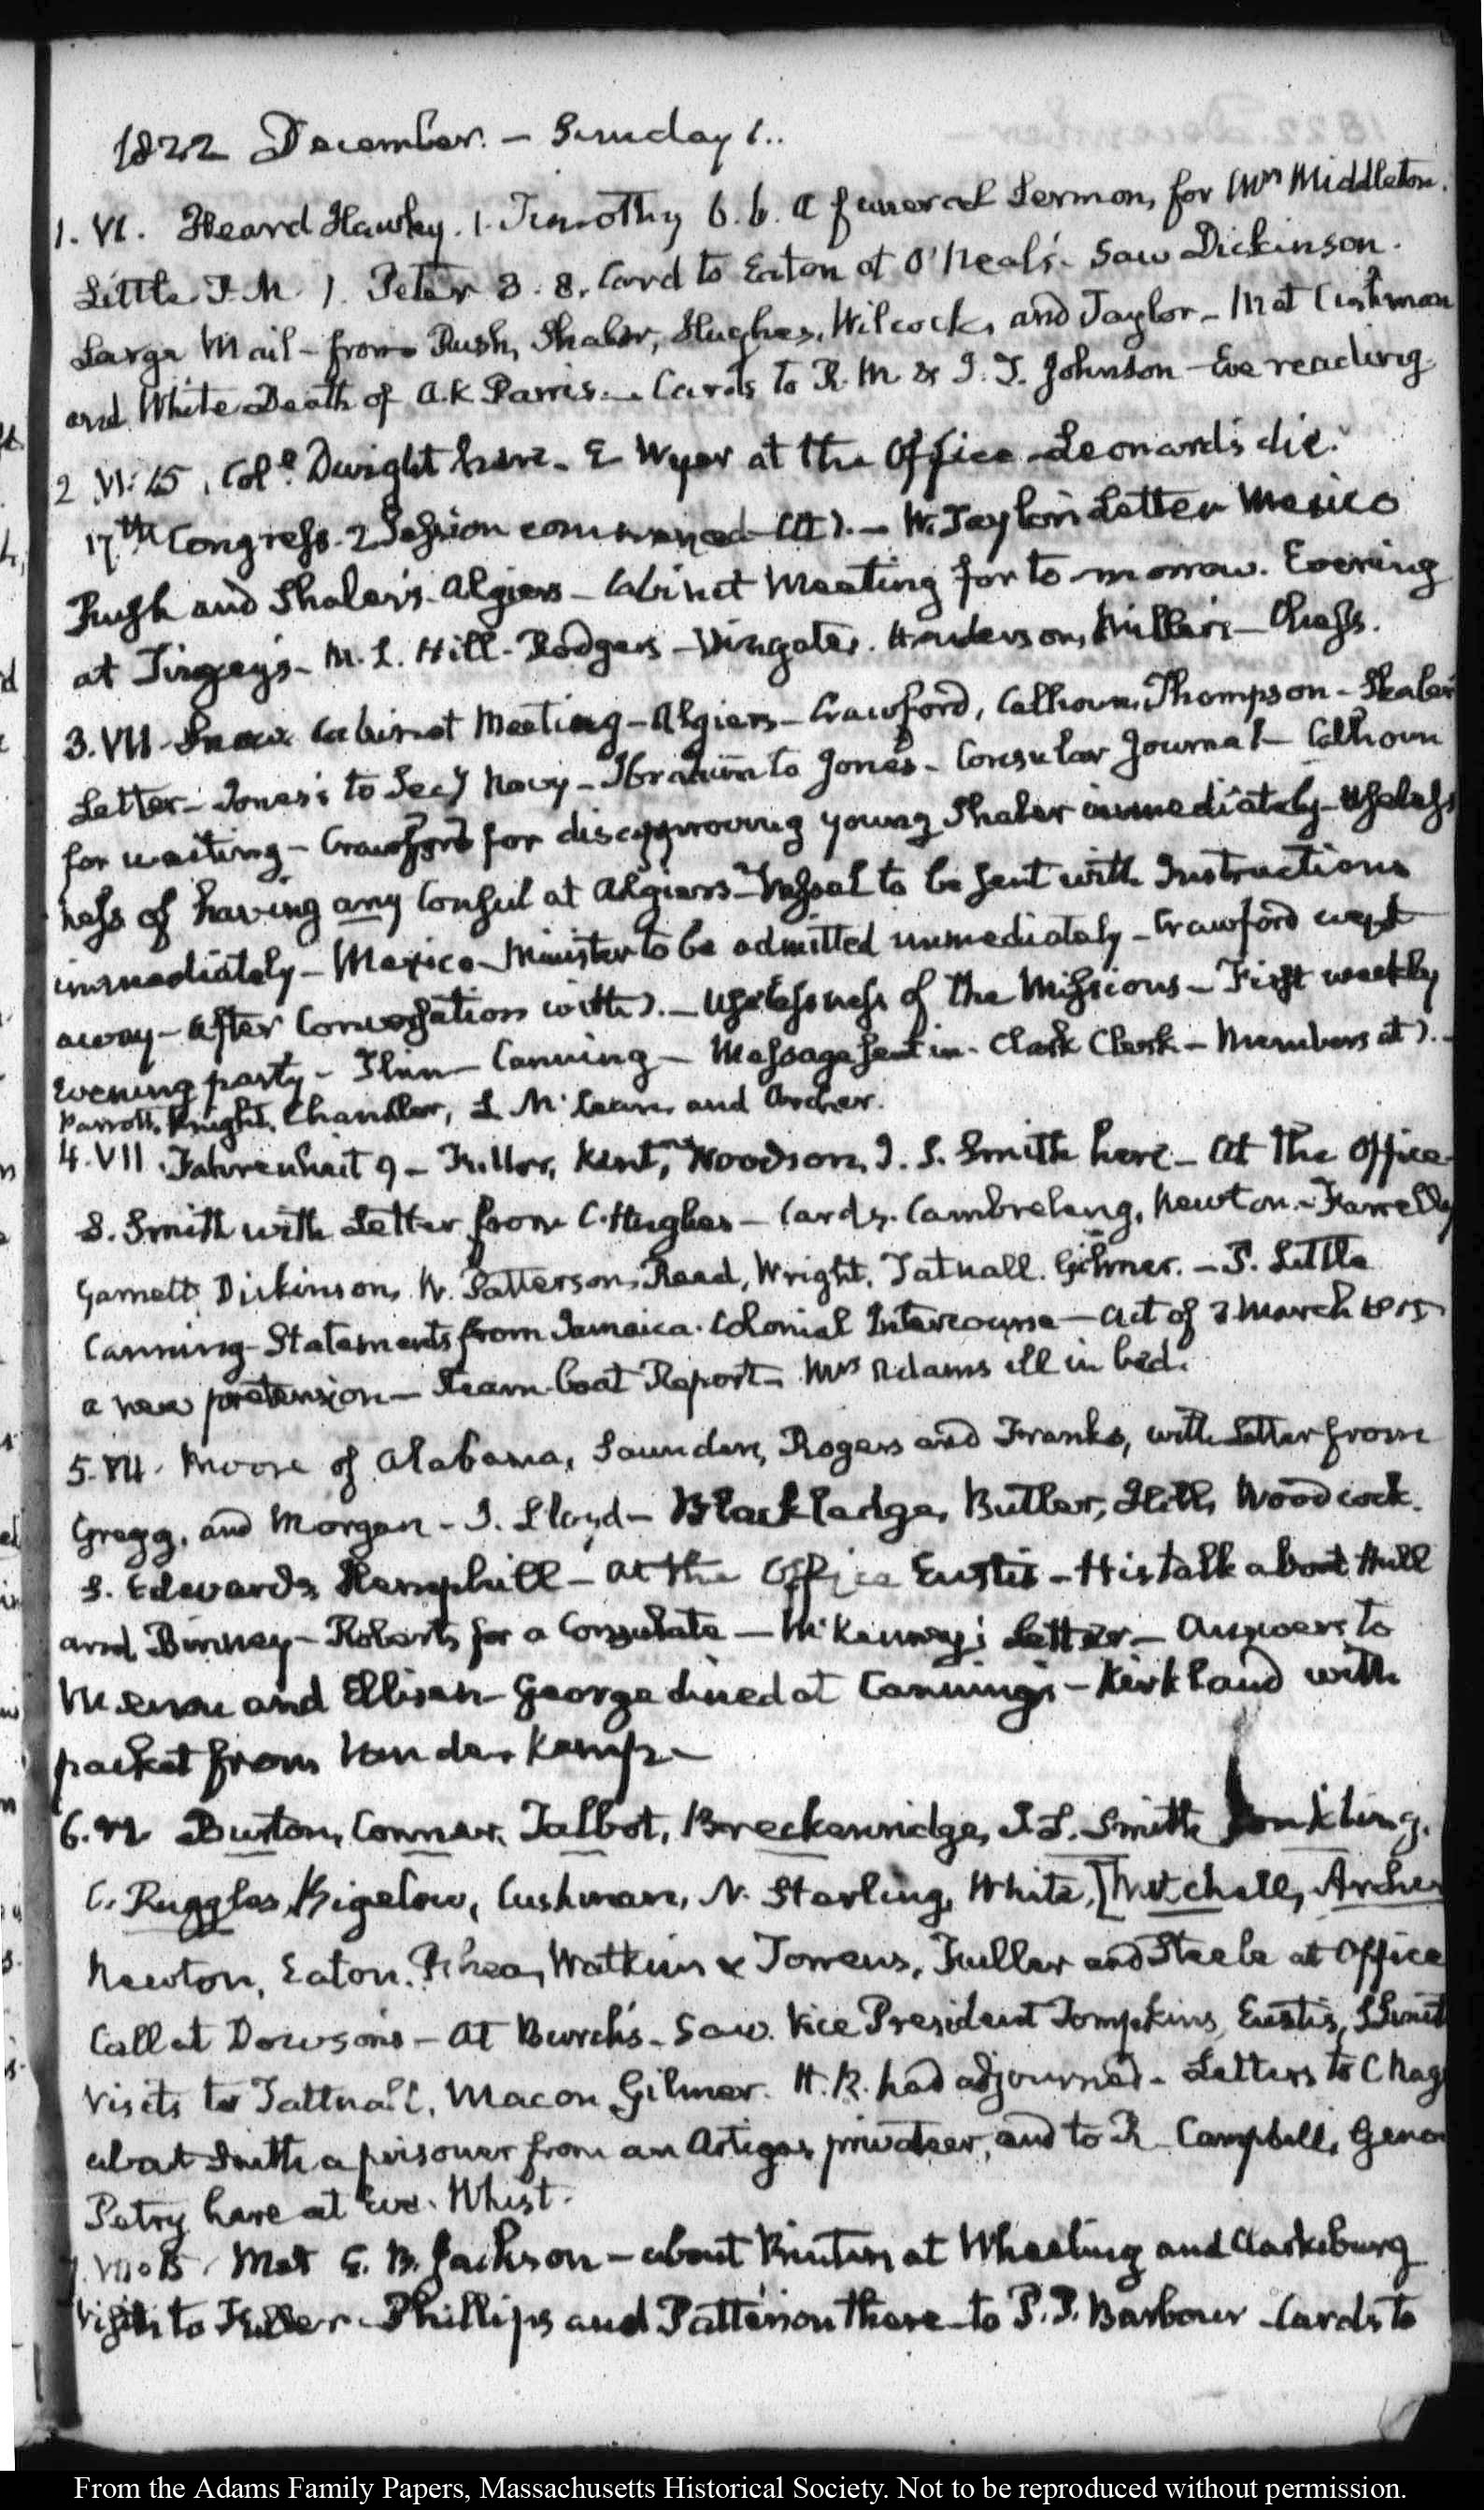 1822 December. – Sunday 1..
1. VI. Heard Hawley. 1. Timothy 6. 6. a funeral Sermon, for Mrs Middleton.
Little P.M. 1. Peter 3. 8. Card to Eaton at O'Neal's. Saw Dickinson.
Large Mail – from Rush, Shaler, Hughes, Wilcocks, and Taylor – Met Cushman
and White Death of A.K. Parris. – Cards to R. M & J. T. Johnson – Eve reading
2 VI: 15. Col. Dwight here. E Wyer at the Office – Leonard's die.
17th Congress. 2 Session commenced – at ). – W. Taylor's Letter Mexico
Rush and Shaler's. Algiers – Cabinet Meeting for to-morrow. Evening
at Tingey's – M. L. Hill – Rodgers – Wingates. Henderson, Miller's – Chess.
3. VII – Snow Cabinet Meeting – Algiers – Crawford, Calhoun, Thompson – Shaler
Letter – Jones's to Secy Navy – to Jones – Consular Journal – Calhoun
for waiting – Crawford for disapproving young Shaler immediately – Useless
ness of having any Consul at Algiers – Vessel to be sent with Instructions
immediately – Mexico – Minister to be admitted immediately – Crawford went
away – after Conversation with ). – Uselessness of the Missions – First weekly
Evening party – Thin – Canning – Message sent in – Clark Clerk – Members at ). –
Parrott, Knight, Chandler, L. McLean, and Archer.
4. VII. Fahrenheit 9 – Fuller, Kent, Woodson, J. S. Smith here – At the Office
S. Smith with Letter from C. Hughes – Cards. Cambreleng, Newton – Farrelly
Garnett, Dickinson, W. Patterson, Reed, Wright, Tatnall. Gilmer. – P. Little
Canning – Statements from Jamaica. Colonial Intercourse – Act of 3 March 1815
a new pretension – Steam-boat Report – Mrs Adams ill in bed.
5. VII. Moore of Alabama, Saunders, Rogers and Franks, with Letter from
Gregg, and Morgan – J. Lloyd – Blackledge, Butler, Hill, Woodcock.
S. Edwards, Hemphill – At the Office Eustis – His talk about Hull
and Binney – Roberts for a Consulate – McKenney's Letter – Answers to
Menou and Ellisen – George dined at Canning's – Kirkland with
packet from Van der Kemp. –
6. VI Burton, Conner, Talbot, Breckenridge, J. S. Smith Conkling.
C. Ruggles, Bigelow, Cushman, N. Sterling, White, [Mitchell, Archer
Newton, Eaton, Rhea, Watkins & Torrens, Fuller and Steele at Office
Call at Dowson's – At Burch's – Saw Vice President Tompkins, Eustis,
Visits to Tattnall, Macon, Gilmer. H. R. had adjourned – Letters to C Nag
about Smith a prisoner from an Artigas privateer, and to R. Campbell, Genoa
Petry here at Eve. Whist.
7. VII:15. Met E. B. Jackson – about Printers at Wheeling and Clarksburg
Visits to Fuller – Phillips and Patterson there – to P. P. Barbour – Cards to
From the Adams Family Papers, Massachusetts Historical Society. Not to be reproduced without permission.